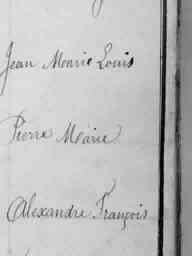 Jean Marie Louis
Pierre Marie
Alexandre François